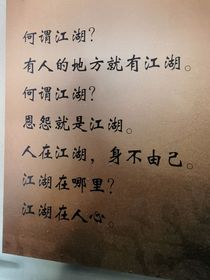 何谓江湖？
有人的地方就有江湖。
何谓江湖？
恩怨就是江湖。
人在江湖，身不由己。
江湖在哪里？
江湖在人心。